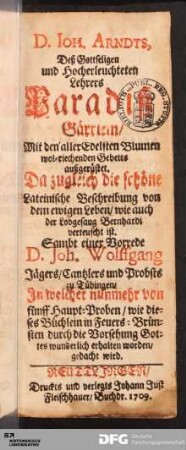 D. Joh. Arndts,
Deß Gottseligen
und Hocherleuchteten
Lehrers
Paradi
Gärtlein/
Mit den aller Edelsten Blumen
wol-riechenden Gebetts
außgerüstet.
Da zugleich die schöne
Lateinische Beschreibung von
dem ewigen Leben/ wie auch
der Lobgesang Bernhardi
verteuscht ist.
Sambt einer Vorrede
D. Joh. Wolffgang
Jägers/ Cantzlers und Probsts
zu Tübingen/
In welcher nunmehr von
fünff Haupt-Proben/ wie die-
ses Büchlein in Feuers-Brün-
sten durch die Vorsehung Got-
tes wunderlich erhalten worden/
gedacht wird.
REUTLINGEN/
Druckts und verlegts Johann Just
Fleischhauer/ Buchdr. 1709.
DFG Deutsche
Forschungsgemeinschaft